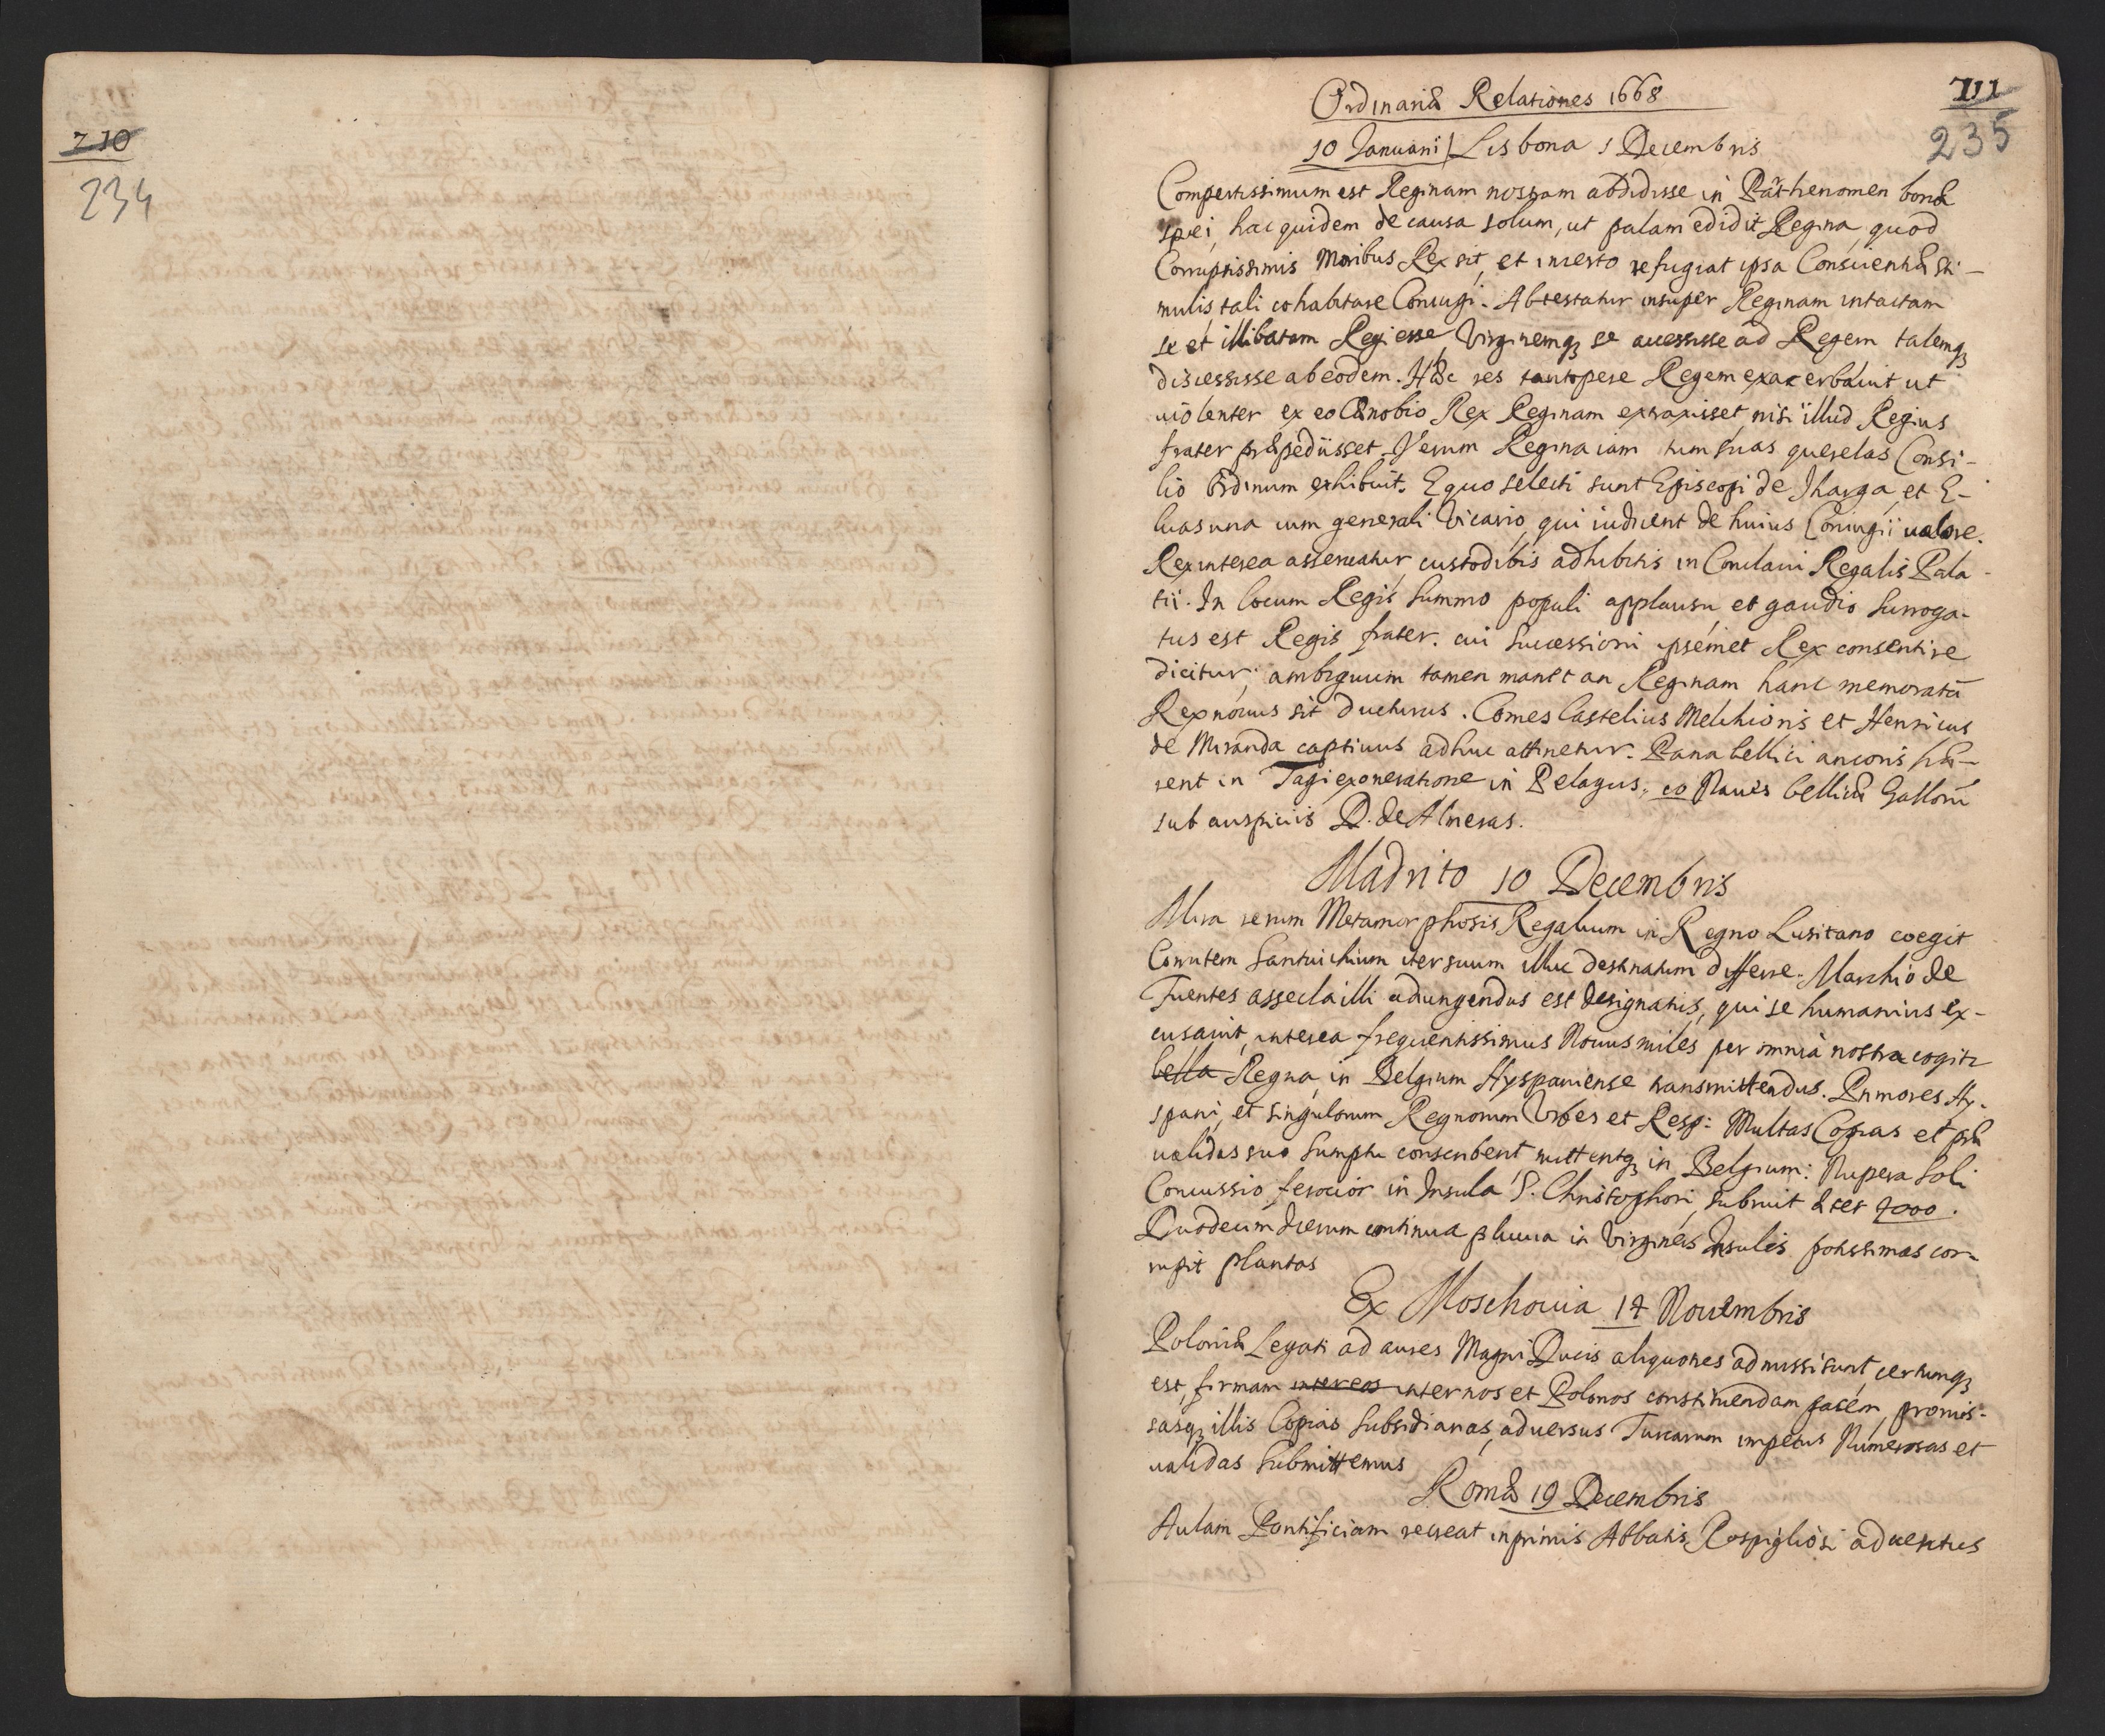 710
234
Ordinariæ Relationes 1668
711
235
10 Januarii Lisbona 1 Decembris
Compertissimum est Reginam nostram abdidisse in Parthenomen bonæ
spei, hac quidem de causa solum, ut palam edidit Regina, quod
Corruptissimis Moribus Rex sit, et incesto refugiat ipsa Conscientiæ sti-
mulis tali cohabitare Coniugi. Abtestatur insuper Reginam intactam
se et illibatam Regi esse Virginemq3 se accessisse ad Regem talemq3
discessisse ab eodem. Hæc res tantopere Regem exacerbauit ut
uiolenter ex eo Cænobio Rex Reginam extraxisset, nisi illud Regius
frater præpediisset. Verum Regina iam tum suas querelas Consi-
lio Ordinum exhibuit. E quo selecti sunt Episcopi de Tharga, et E-
luas una cum generali Vicario, qui iudicent de huius Coniugii ualore.
Rex interea asseruatur custodibis adhibitis in Conclaui Regalis Pala-
tii. In locum Regis summo populi applausu et gaudio surroga-
tus est Regis frater. cui Successioni ipsémet Rex consentire
dicitur; ambiguum tamen manet an Reginam hanc memoratã
Rex nouus sit ducturus. Comes Castelius Melchioris et Henricus
de Miranda captiuus adhuc attinetur. Pana bellici anconis hæ-
rent in Tagi exoneratione in Pelagus, 10 Naues bellicæ Gallorũ
sub auspiciis D. de Almeras.
Madrito 10 Decembris
Mira rerum Metamorphosis Regalium in Regno Lusitano coegit
Comitem Santuichium iter suum illuc destinatum differre. Marchio de
Fuentes assecla illi adiungendus est designatus, qui se humanius ex-
cusauit, interea frequentissimus Nouus miles per omnia nostra cogitr
bella Regna, in Belgium Hyspaniense transmittendus. Primores Hy-
spani, et singulorum Regnorum Urbes et Resp: Multas Copias et præ
ualidas suo sumptu conscribent mittentq3 in Belgium: Nupera soli
Concussio ferocior in Insula S. Christophori, subruit ædes 2000.
Duodecim dierum continua pluuia in Virgineis Insulis potissimas cor-
rupit plantas
Ex Moschouia 14 Nouembris
Poloniæ Legati ad aures Magni Ducis aliquoties admissi sunt, certumq3
est, firmam inter eos inter nos et Polonos constituendam pacem, promis-
sasq3 illis Copias Subsidiarias, aduersus Turcarum impetus Numerosas et
ualidas Submittemus
Romæ 19 Decembris
Aulam Pontificiam recreat inprimis Abbatis Rospigliosi aduentus